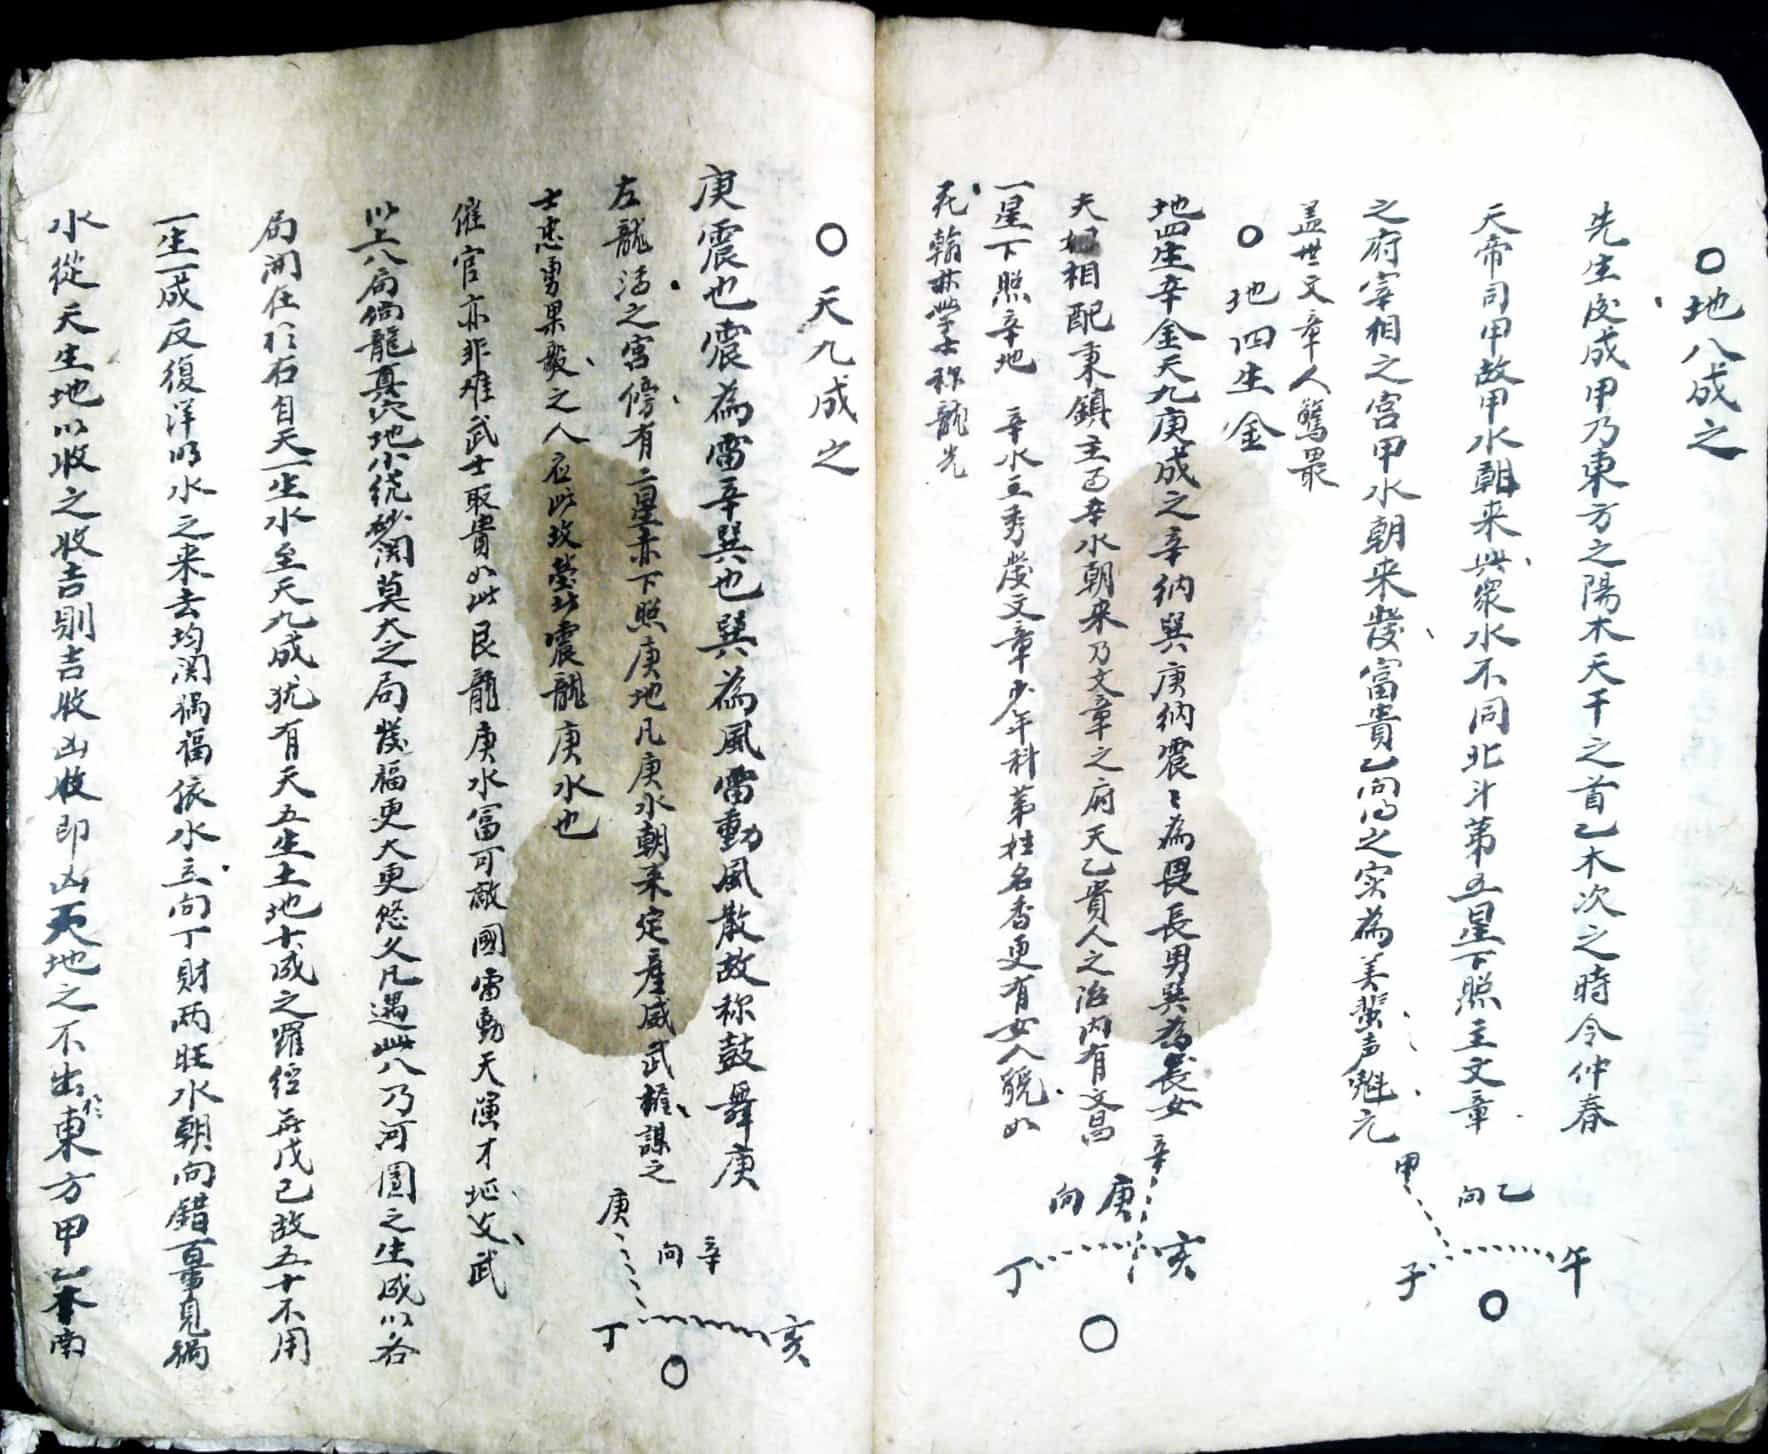 ○地八成之
先生後成甲乃東方之陽木天干之首乙木次之時令仲春
天帝司甲故甲水朝来與衆水不同北斗第五星下照主文章
之府宰相之宮甲水朝来發富貴乙向得之实為美蜚声魁元
盖世文章人驚羅
甲
乙
向
子
午
○
○地四生金
地四生辛金天九庚成之辛納巽庚納震〻為畏長男巽為長女
夫婦相配東鎮主西辛水朝来乃文章之府天乙貴人之治内有文昌
一星下照辛地 辛水主秀發文章少年科第桂名香更有女人貌如
花翰林學士称龍光
辛
庚
向
丁
亥
○
○天九成之
庚震也震為雷辛巽也巽為風雷動風散故称鼓舞庚
左龍活之宮傍有二星亦下照庚地凡庚水朝来定産威武權謀之
士忠勇果毅之人应此 震龍庚水也
催官亦非难武士取貴如此艮龍庚水富可敵國雷動天演才堪文武
以上八局倘龍真穴地小绕砂関莫大之局發福更大更悠久凡遇此八乃河圖之生成以各
局開在於右自天一生水至天九成犹有天五生土地十成之羅經無戊己故五十不用
一生一成反復洋明水之来去均関禍福依水立向丁財两旺水朝向錯百事見禍
水從天生地以收之收吉則吉收凶收即凶天地之不出於東方甲乙木南
庚
辛
向
丁
亥
○